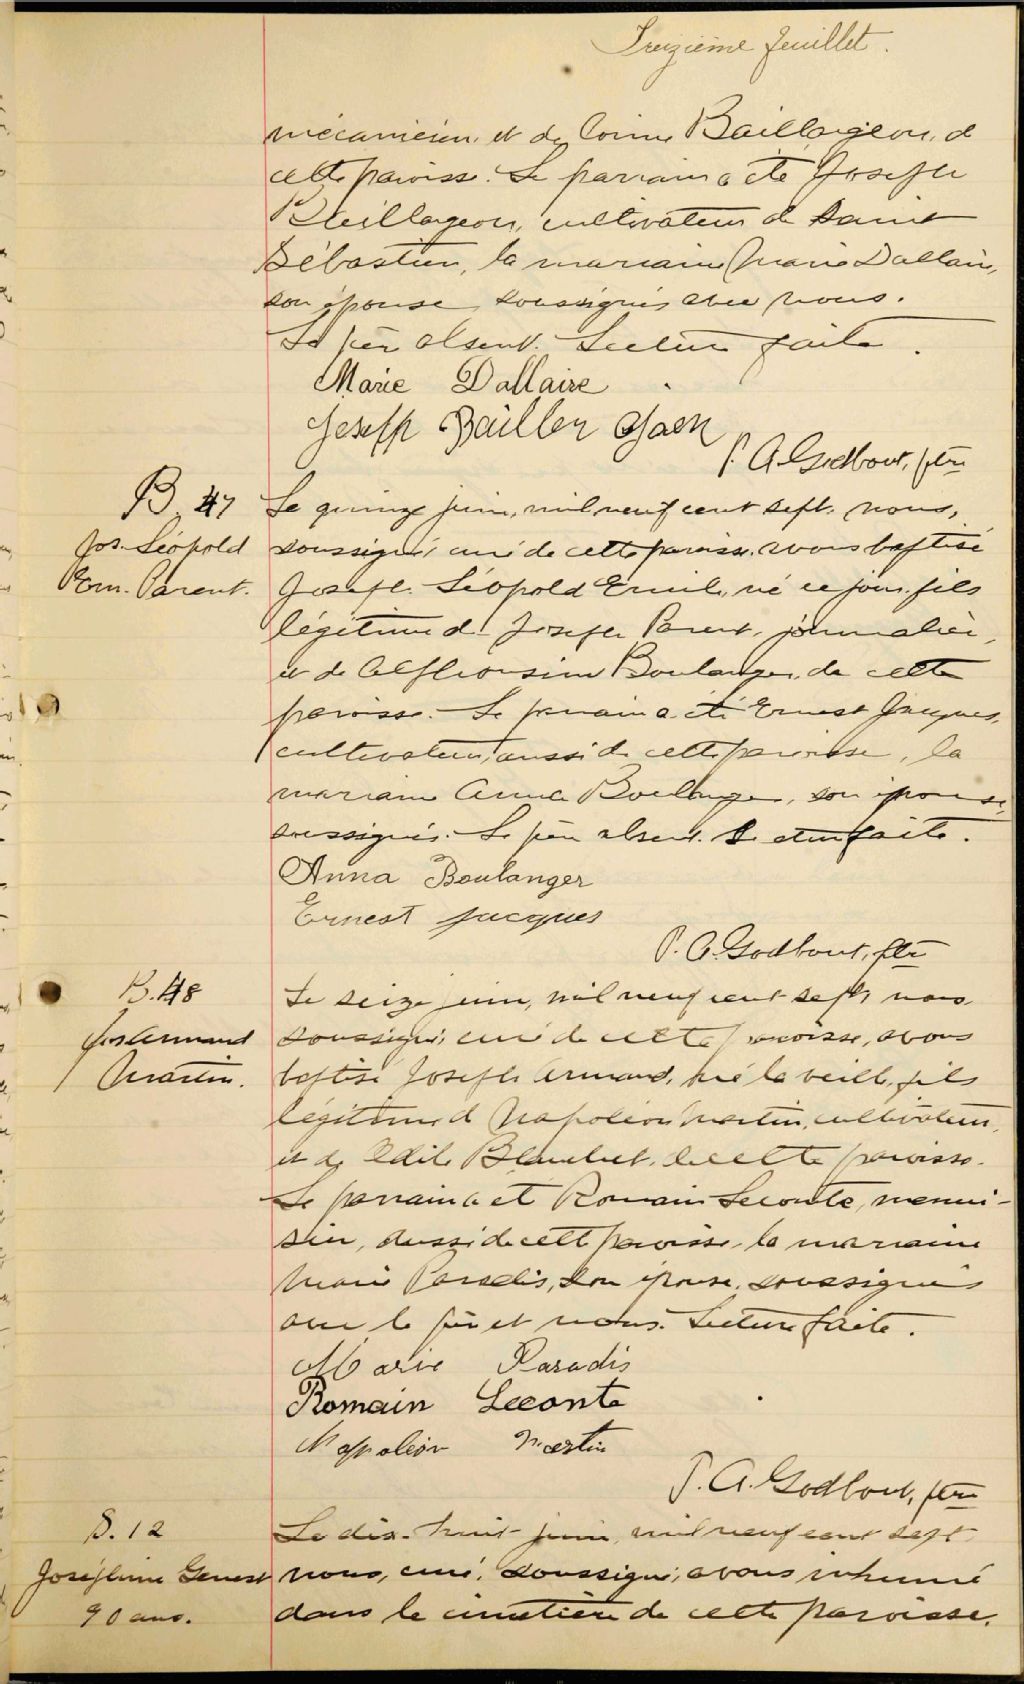 Treizième feuillet.
mécanicien, et de Corinne Baillargeon, de
cette paroisse. Le parrain a été Joseph
Baillargeon, cultivateur de Saint
Sébastien, la marraine Marie Dallaire,
son épouse soussignés avec nous.
Le père absent. Lecture faite.
Marie Dallaire
Joseph Bailler Gaen
P. A. Godbout, ptre
B. 47
Jos. Léopold
Em. Parent.
Le quinze juin, mil neuf cent sept, nous,
soussigné, curé de cette paroisse, avons baptisé
Joseph Léopold Emile, né ce jour, fils
légitime de Joseph Parent, journalier,
et de Alphonsine Boulanger, de cette
paroisse. Le parrain a été Ernest Jacques,
cultivateur, aussi de cette paroisse, la
marraine Anna Boulanger, son épouse,
soussignés. Le père absent. Lecture faite.
Anna Boulanger
Ernest Jacques
P. A. Godbout, ptre
B. 48
Jos Armand
Martin.
Le seize juin, mil neuf cent sept nous
soussigné, curé de cette paroisse, avons
baptisé Joseph Armand, né la veille, fils
légitime de Napoléon Martin, cultivateur,
et de Odile Blanchet, de cette paroisse.
Le parrain a été Romain Leconte, menui-
sier, aussi de cette paroisse, la marraine
Marie Paradis, son épouse, soussignés
avec le père et nous. Lecture faite.
Marie Paradis
Romain Leconte
Napoléon Martin
P. A. Godbout, ptre
S. 12
Joséphine Genest
90 ans.
Le dix-huit juin, mil neuf cent sept
nous, curé, soussigné, avons inhumé
dans le cimetière de cette paroisse,